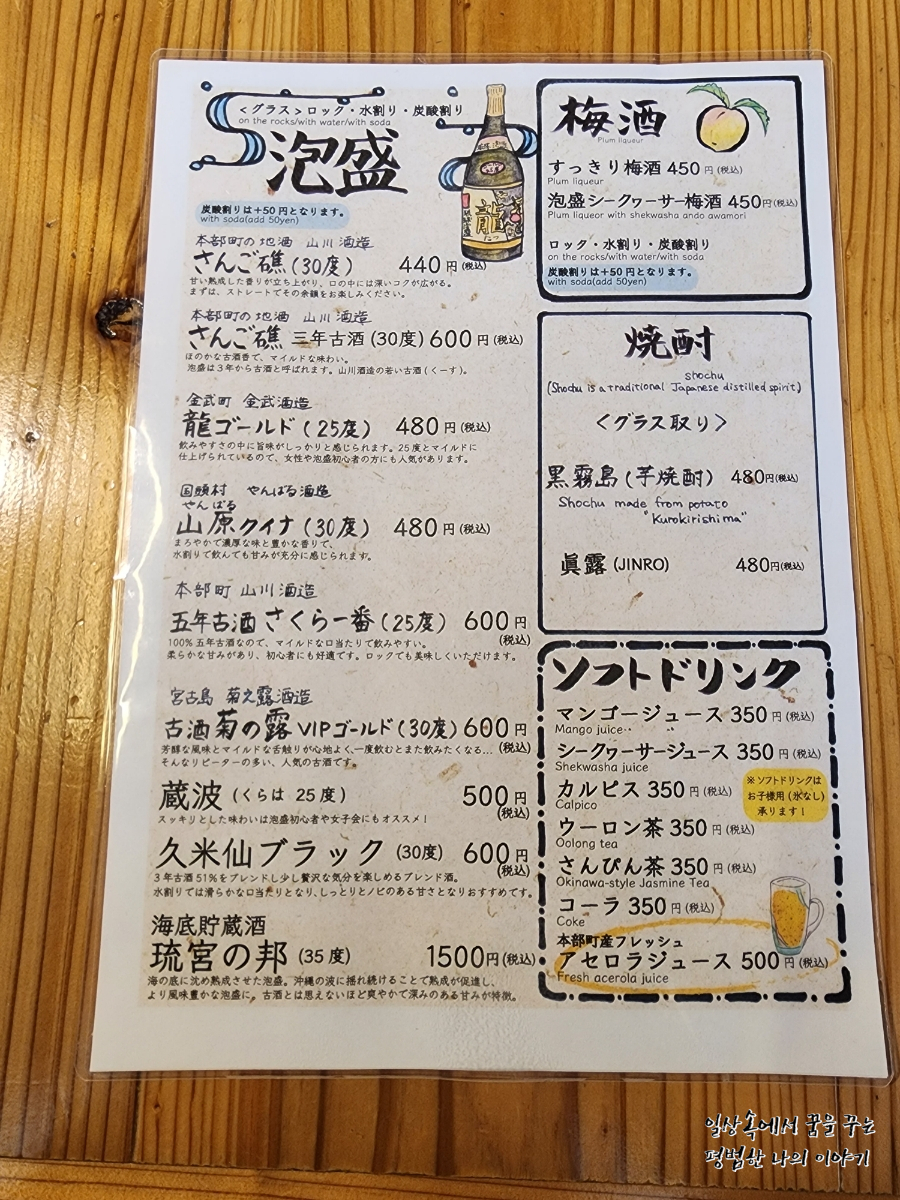 <グラス>ロック・水割り・炭酸割り
on the rocks/with water/with soda
泡盛
炭酸割りは+50円となります。
with soda(add 50yen)
龍
たつ
本部町の地酒 山川酒造
さんご礁(30度) 440円(税込)
甘い熟成した香りが立ち上がり、口の中には深いコクが広がる。
まずは、ストレートでその余韻をお楽しみください。
本部町の地酒 山川酒造
さんご礁 三年古酒(30度)600円(税込)
ほのかな古酒香で、マイルドな味わい。
泡盛は3年から古酒と呼ばれます。山川酒造の若い古酒(くーす)。
金武町 金武酒造
龍ゴールド(25度) 480円(税込)
飲みやすさの中に旨味がしっかりと感じられます。25度とマイルドに
仕上げられているので、女性や泡盛初心者の方にも人気があります。
国頭村 やんばる酒造
やんばる
山原クイナ(30度) 480円(税込)
まろやかで濃厚な味と豊かな香りで、
水割りで飲んでも甘みが充分に感じられます。
本部町 山川酒造
五年古酒 さくら一番(25度) 600円(税込)
100%五年古酒なので、マイルドな口当たりで飲みやすい。
柔らかな甘みがあり、初心者にも好適です。ロックでも美味しくいただけます。
宮古島 菊之露酒造
古酒 菊の露 VIPゴールド(30度)600円(税込)
芳醇な風味とマイルドな舌触りが心地よく、一度飲むとまた飲みたくなる…
そんなリピーターの多い、人気の古酒です。
蔵波(くらは 25度) 500円(税込)
スッキリとした味わいは泡盛初心者や女子会にもオススメ!
久米仙ブラック(30度) 600円(税込)
3年古酒51%をブレンドし少し贅沢な気分を楽しめるブレンド酒。
水割りでは滑らかな口当たりとなり、しっとりとノビのある甘さとなりおすすめです。
海底貯蔵酒
琉宮の邦(35度) 1500円(税込)
海の底に沈め熟成させた泡盛。沖縄の波に揺れ続けることで熟成が促進し、
より風味豊かな泡盛に。古酒とは思えないほど爽やかで深みのある甘みが特徴。
梅酒
Plum liqueur
すっきり梅酒 450円(税込)
Plum liqueur
泡盛シークヮーサー梅酒 450円(税込)
Plum liqueor with shekwasha ando awamori
ロック・水割り・炭酸割り
on the rocks/with water/with soda
炭酸割りは+50円となります。
with soda(add 50yen)
焼酎
shochu
(Shochu is a traditional Japanese distilled spirit)
<グラス取り>
黒霧島(芋焼酎) 480円(税込)
Shochu made from potato
"Kurokirishima"
眞露(JINRO) 480円(税込)
ソフトドリンク
マンゴージュース 350円(税込)
Mango juice
シークヮーサージュース 350円(税込)
Shekwasha juice
カルピス 350円(税込)
Calpico
※ソフトドリンクは
お子様用(氷なし)
承ります!
ウーロン茶 350円(税込)
Oolong tea
さんぴん茶 350円(税込)
Okinawa-style Jasmine Tea
コーラ 350円(税込)
Coke
本部町産フレッシュ
アセロラジュース 500円(税込)
Fresh acerola juice
일상 속에서 꿈을 꾸는
평범한 나의 이야기